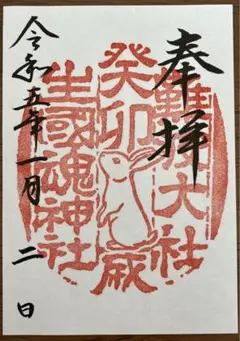 奉拝
難波大社
癸卯歳
生國魂神社
令和五年一月二日